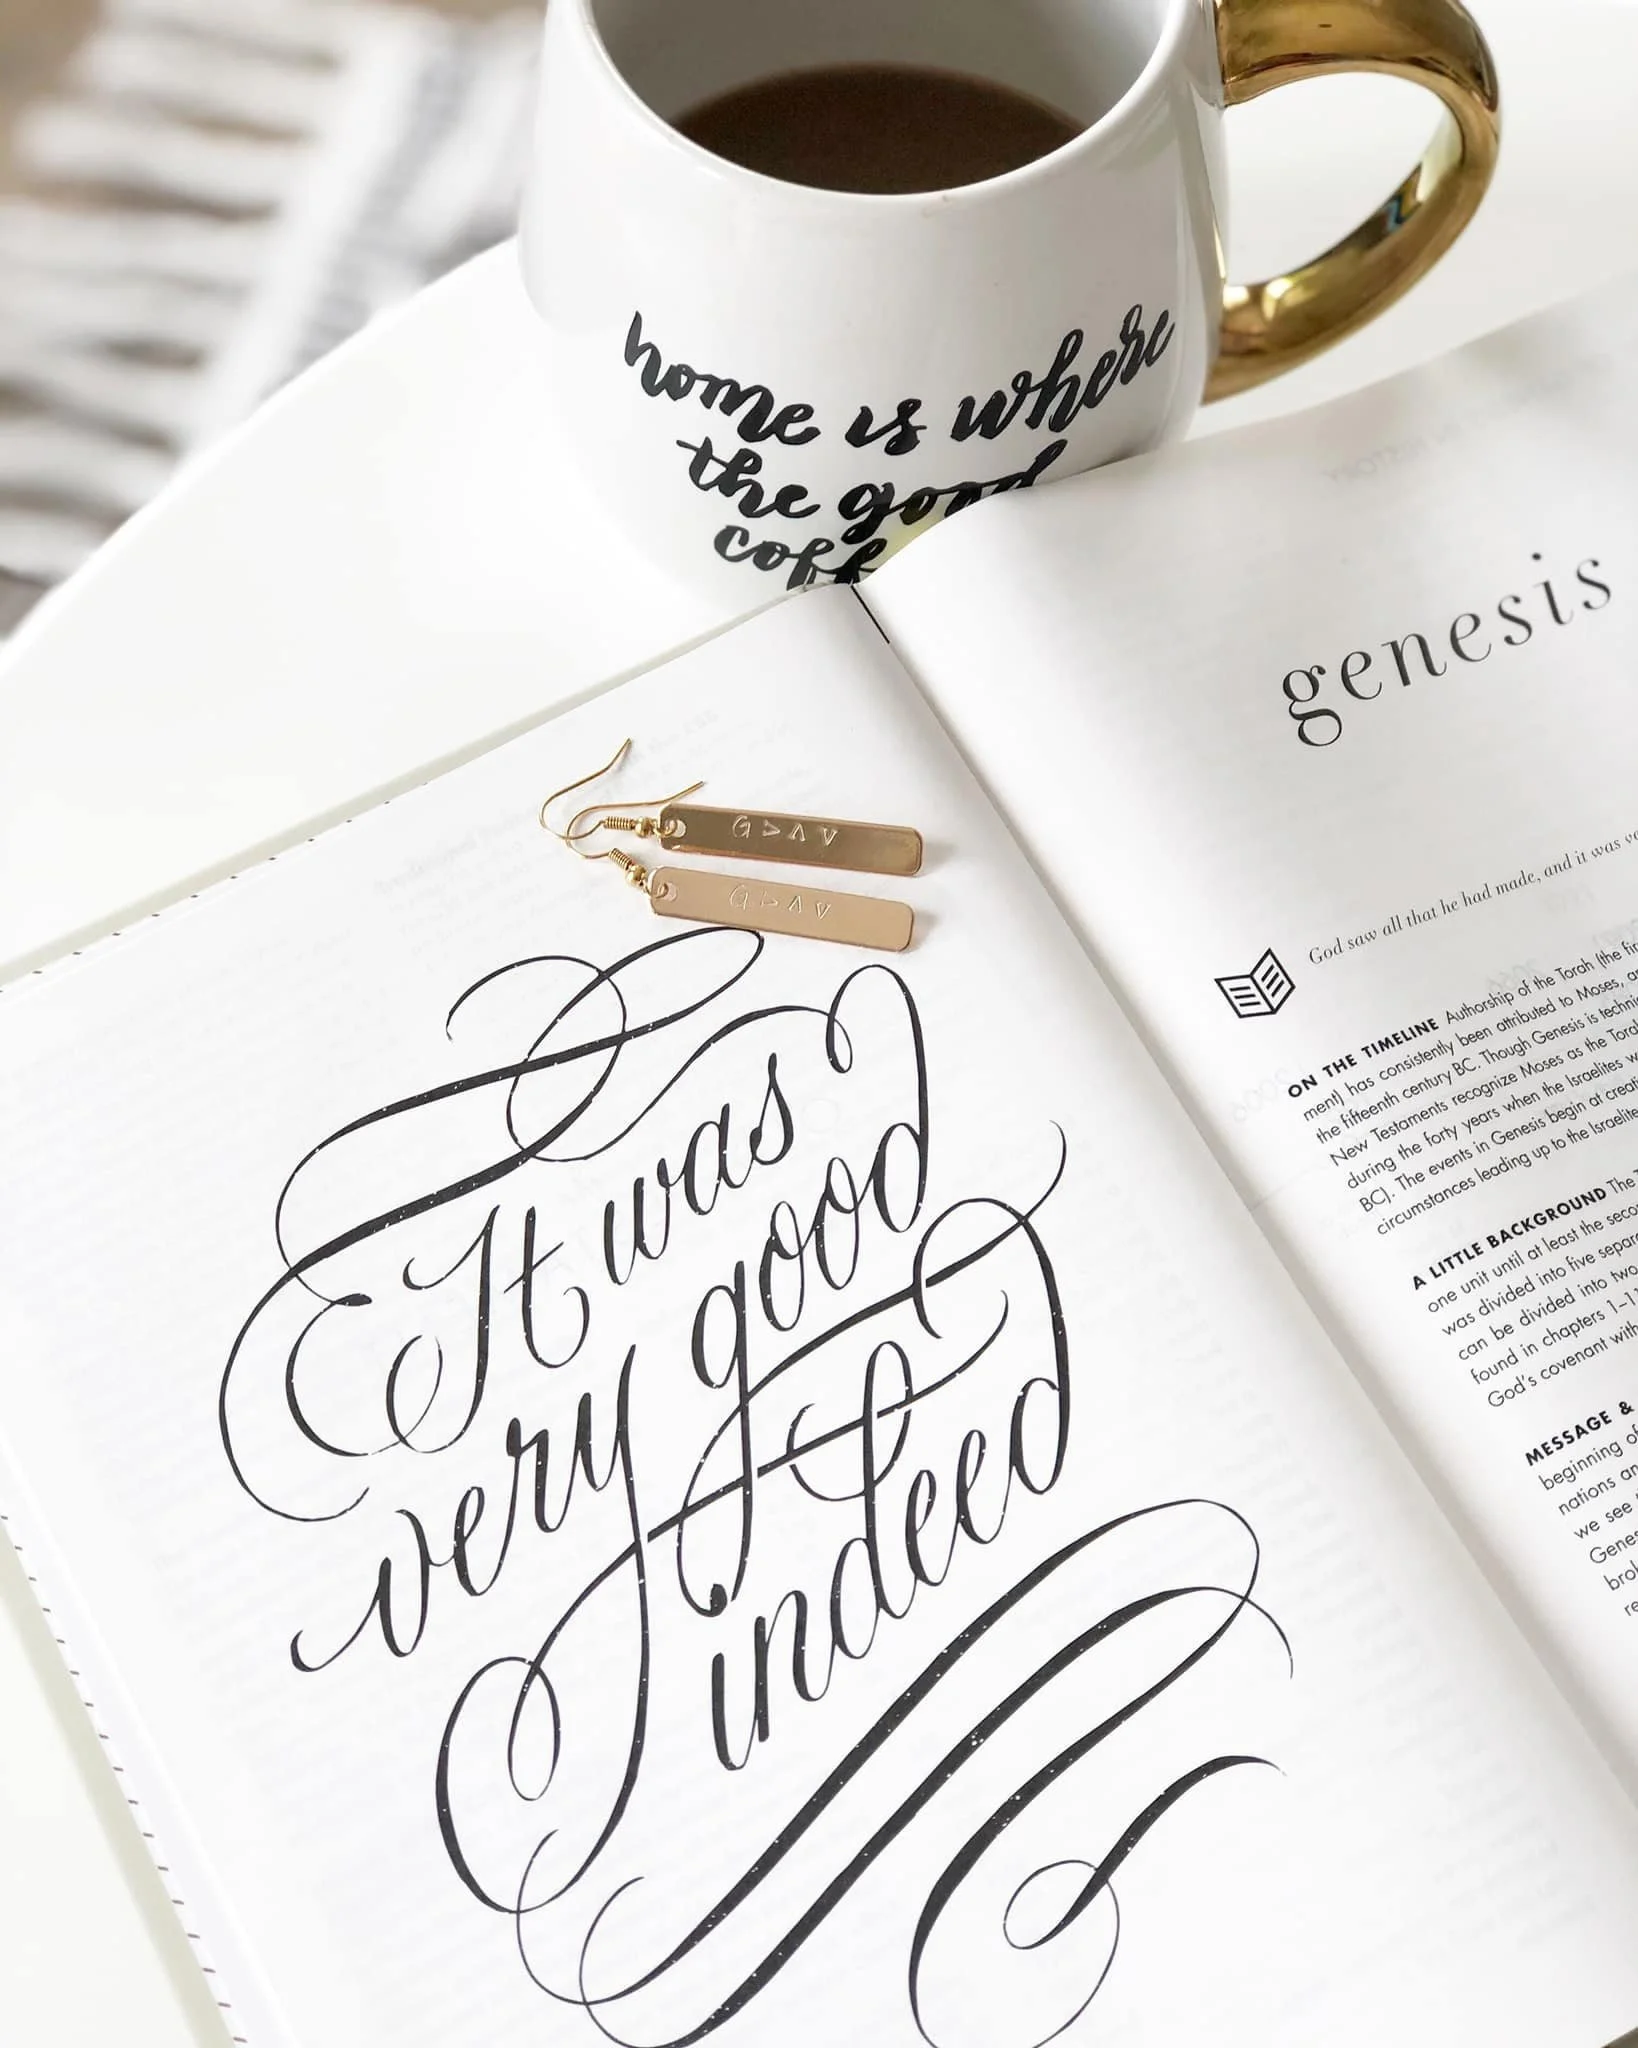 home is where
the good
coff
genesis
G > ʌ v
G > ʌ v
God saw all that he had made, and it was
It was
very good
indeed
ON THE TIMELINE Authorship of the Torah (the
ment) has consistently been attributed to Moses,
the fifteenth century BC. Though Genesis is
New Testaments recognize Moses as the
during the forty years when the Israelites
BC). The events in Genesis begin at
circumstances leading up to the
A LITTLE BACKGROUND The
one unit until at least the
was divided into five
can be divided into two
found in chapters 1–11
God's covenant with
MESSAGE &
beginning
nations
we see